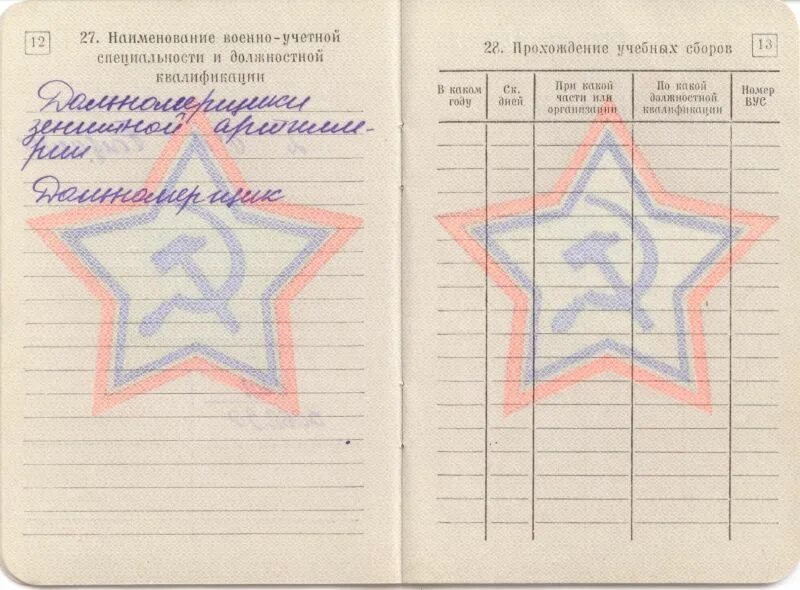 12
27. Наименование военно-учетной
специальности и должностной
квалификации
Дальномерщики
зенитной артилле-
рии
Дальномерщик
13
28. Прохождение учебных сборов
В каком году
Ск. дней
При какой части или организации
По какой должностной квалификации
Номер ВУС